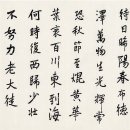 待日晞陽春布德
澤萬物生光輝常
恐秋節至焜黃華
葉衰百川東到海
何時復西歸少壯
不努力老大徒